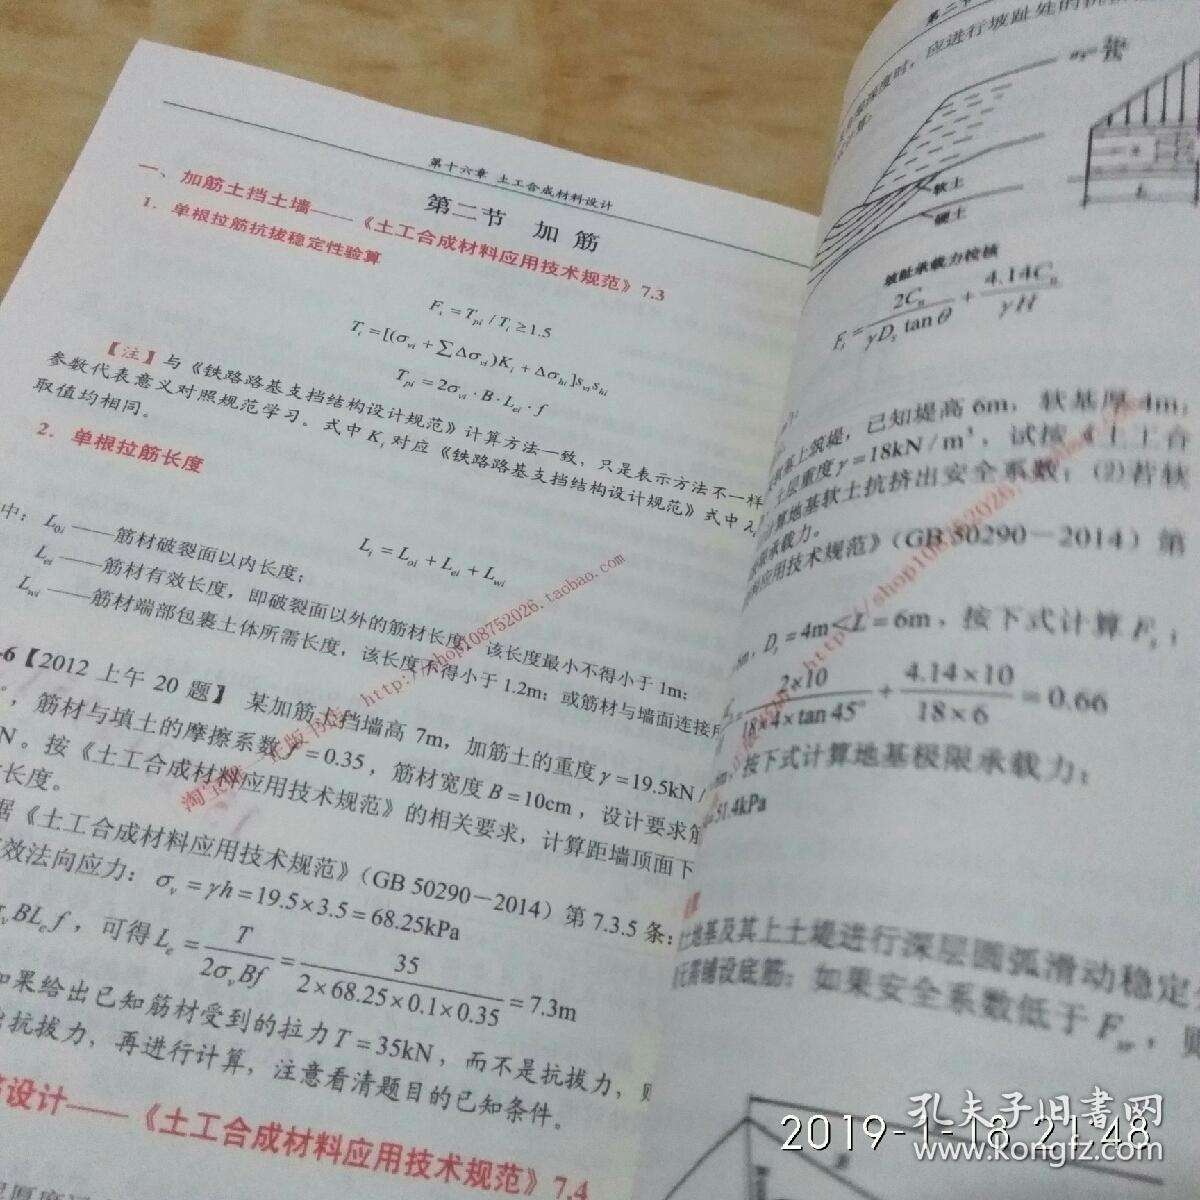 第十六章 土工合成材料设计
第二节 加筋
一、加筋土挡土墙——《土工合成材料应用技术规范》7.3
1. 单根拉筋抗拔稳定性验算
F_s=T_pi/T_i≥1.5
T_i=[(σ_vi+∑Δσ_vi)K_i+Δσ_hi]s_vi s_hi
T_pi=2σ_vi·B·L_ei·f
【注】与《铁路路基支挡结构设计规范》计算方法一致，只是表示方法不一样
参数代表意义对照规范学习。式中K_i对应《铁路路基支挡结构设计规范》式中λ_i
取值均相同。
2. 单根拉筋长度
L_i=L_0i+L_ei+L_wi
中：L_0i——筋材破裂面以内长度；
L_ei——筋材有效长度，即破裂面以外的筋材长度，该长度最小不得小于1m；
L_wi——筋材端部包裹土体所需长度，该长度不得小于1.2m；或筋材与墙面连接所
-6【2012上午20题】 某加筋土挡墙高7m，加筋土的重度γ=19.5kN/
，筋材与填土的摩擦系数f=0.35，筋材宽度B=10cm，设计要求
N。按《土工合成材料应用技术规范》的相关要求，计算距墙顶面下
长度。
据《土工合成材料应用技术规范》(GB 50290—2014)第7.3.5条：
效法向应力：σ_v=γh=19.5×3.5=68.25kPa
σ_v BL_e f，可得L_e=T/(2σ_v Bf)=35/(2×68.25×0.1×0.35)=7.3m
如果给出已知筋材受到的拉力T=35kN，而不是抗拔力，则
抗拔力，再进行计算，注意看清题目的已知条件。
设计——《土工合成材料应用技术规范》7.4
http://shop108752026.taobao.com
应进行坡趾处的
软土
硬土
坡趾承载力校核
F_s=2C_u/(γD_s tanθ)+4.14C_u/(γH)
基上筑堤，已知堤高6m，软基厚4m，
重度γ=18kN/m³，试按《土工合
计算地基软土抗挤出安全系数；(2)若软
承载力。
应用技术规范》(GB 50290—2014)第
D_s=4m<L=6m，按下式计算F_s：
2×10/(18×4×tan45°)+4.14×10/(18×6)=0.66
按下式计算地基极限承载力：
51.4kPa
地基及其上土堤进行深层圆弧滑动稳定
铺设底筋；如果安全系数低于F_sr，则
2019-1-18 21:48
孔夫子旧书网
www.kongfz.com